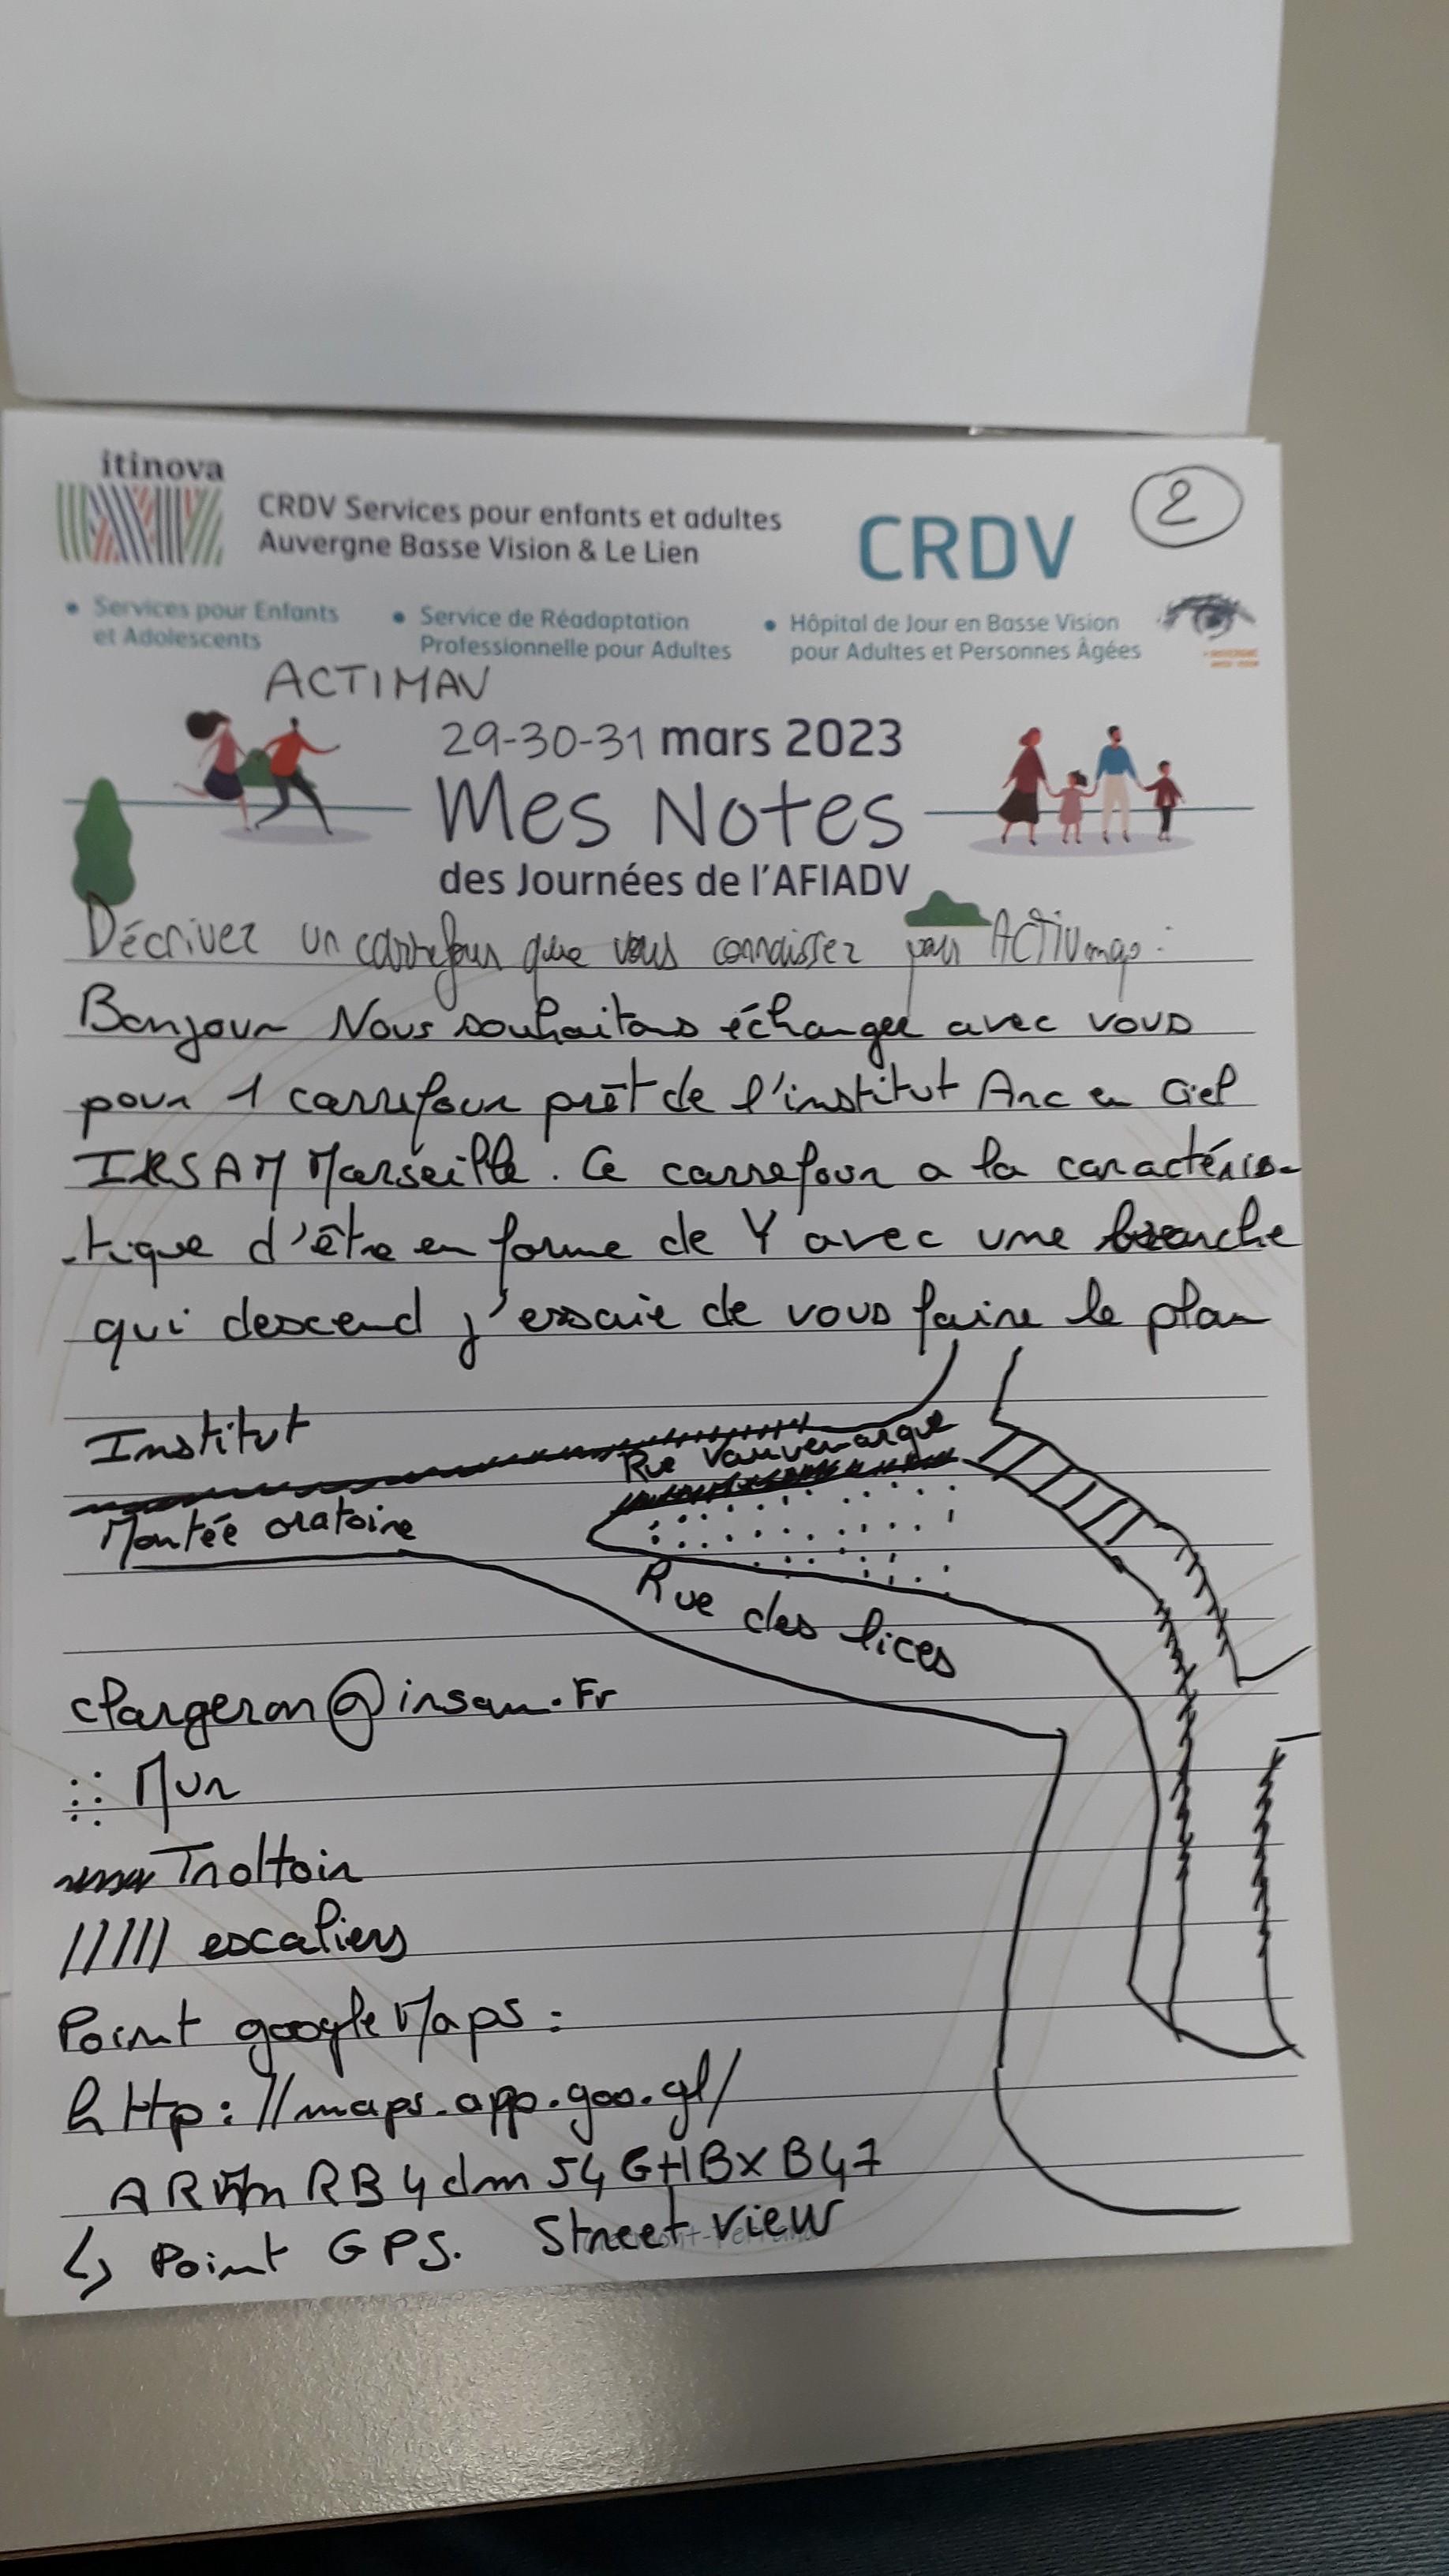 itinova
CRDV Services pour enfants et adultes
Auvergne Basse Vision & Le Lien
CRDV
2
• Services pour Enfants
et Adolescents
• Service de Réadaptation
Professionnelle pour Adultes
• Hôpital de Jour en Basse Vision
pour Adultes et Personnes Âgées
ACTIMAV
29-30-31 mars 2023
Mes Notes
des Journées de l'AFIADV
Décrivez un carrefour que vous connaissez pour ACTIVmap :
Bonjour Nous souhaitons échanger avec vous
pour 1 carrefour prêt de l'institut Arc en Ciel
IRSAM Marseille. Ce carrefour a la caractéris-
-tique d'être en forme de Y avec une branche
qui descend j'essaie de vous faire le plan
Institut
Rue Vauvenargue
Montée oratoire
Rue des lices
@irsam.Fr
Mur
Trottoir
///// escaliers
Point google Maps :
http://maps.app.goo.gl/
RB4dm54GHBXB47
↳ Point GPS. Street view